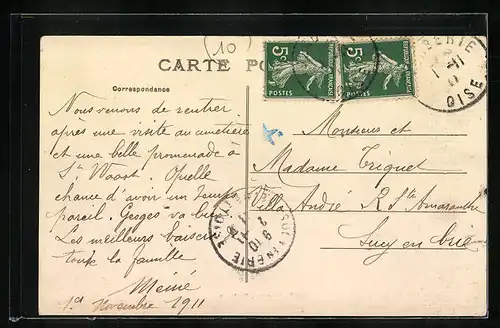 (10)
CARTE PO
5c 5c
REPUBLIQUE FRANÇAISE
POSTES POSTES
BERIE
1 -11
11
OISE
Correspondance
Nous venons de rentrer
après une visite au cimetière
et une belle promenade à
St Waast. Quelle
chance d'avoir un temps
pareil. Georges va bien
Les meilleurs baisers
toute la famille
Mémé
1er Novembre 1911
Monsieur et
Madame Triquet
Villa André R Ste Amaranthe
Sucy en Brie
SUCY EN BRIE